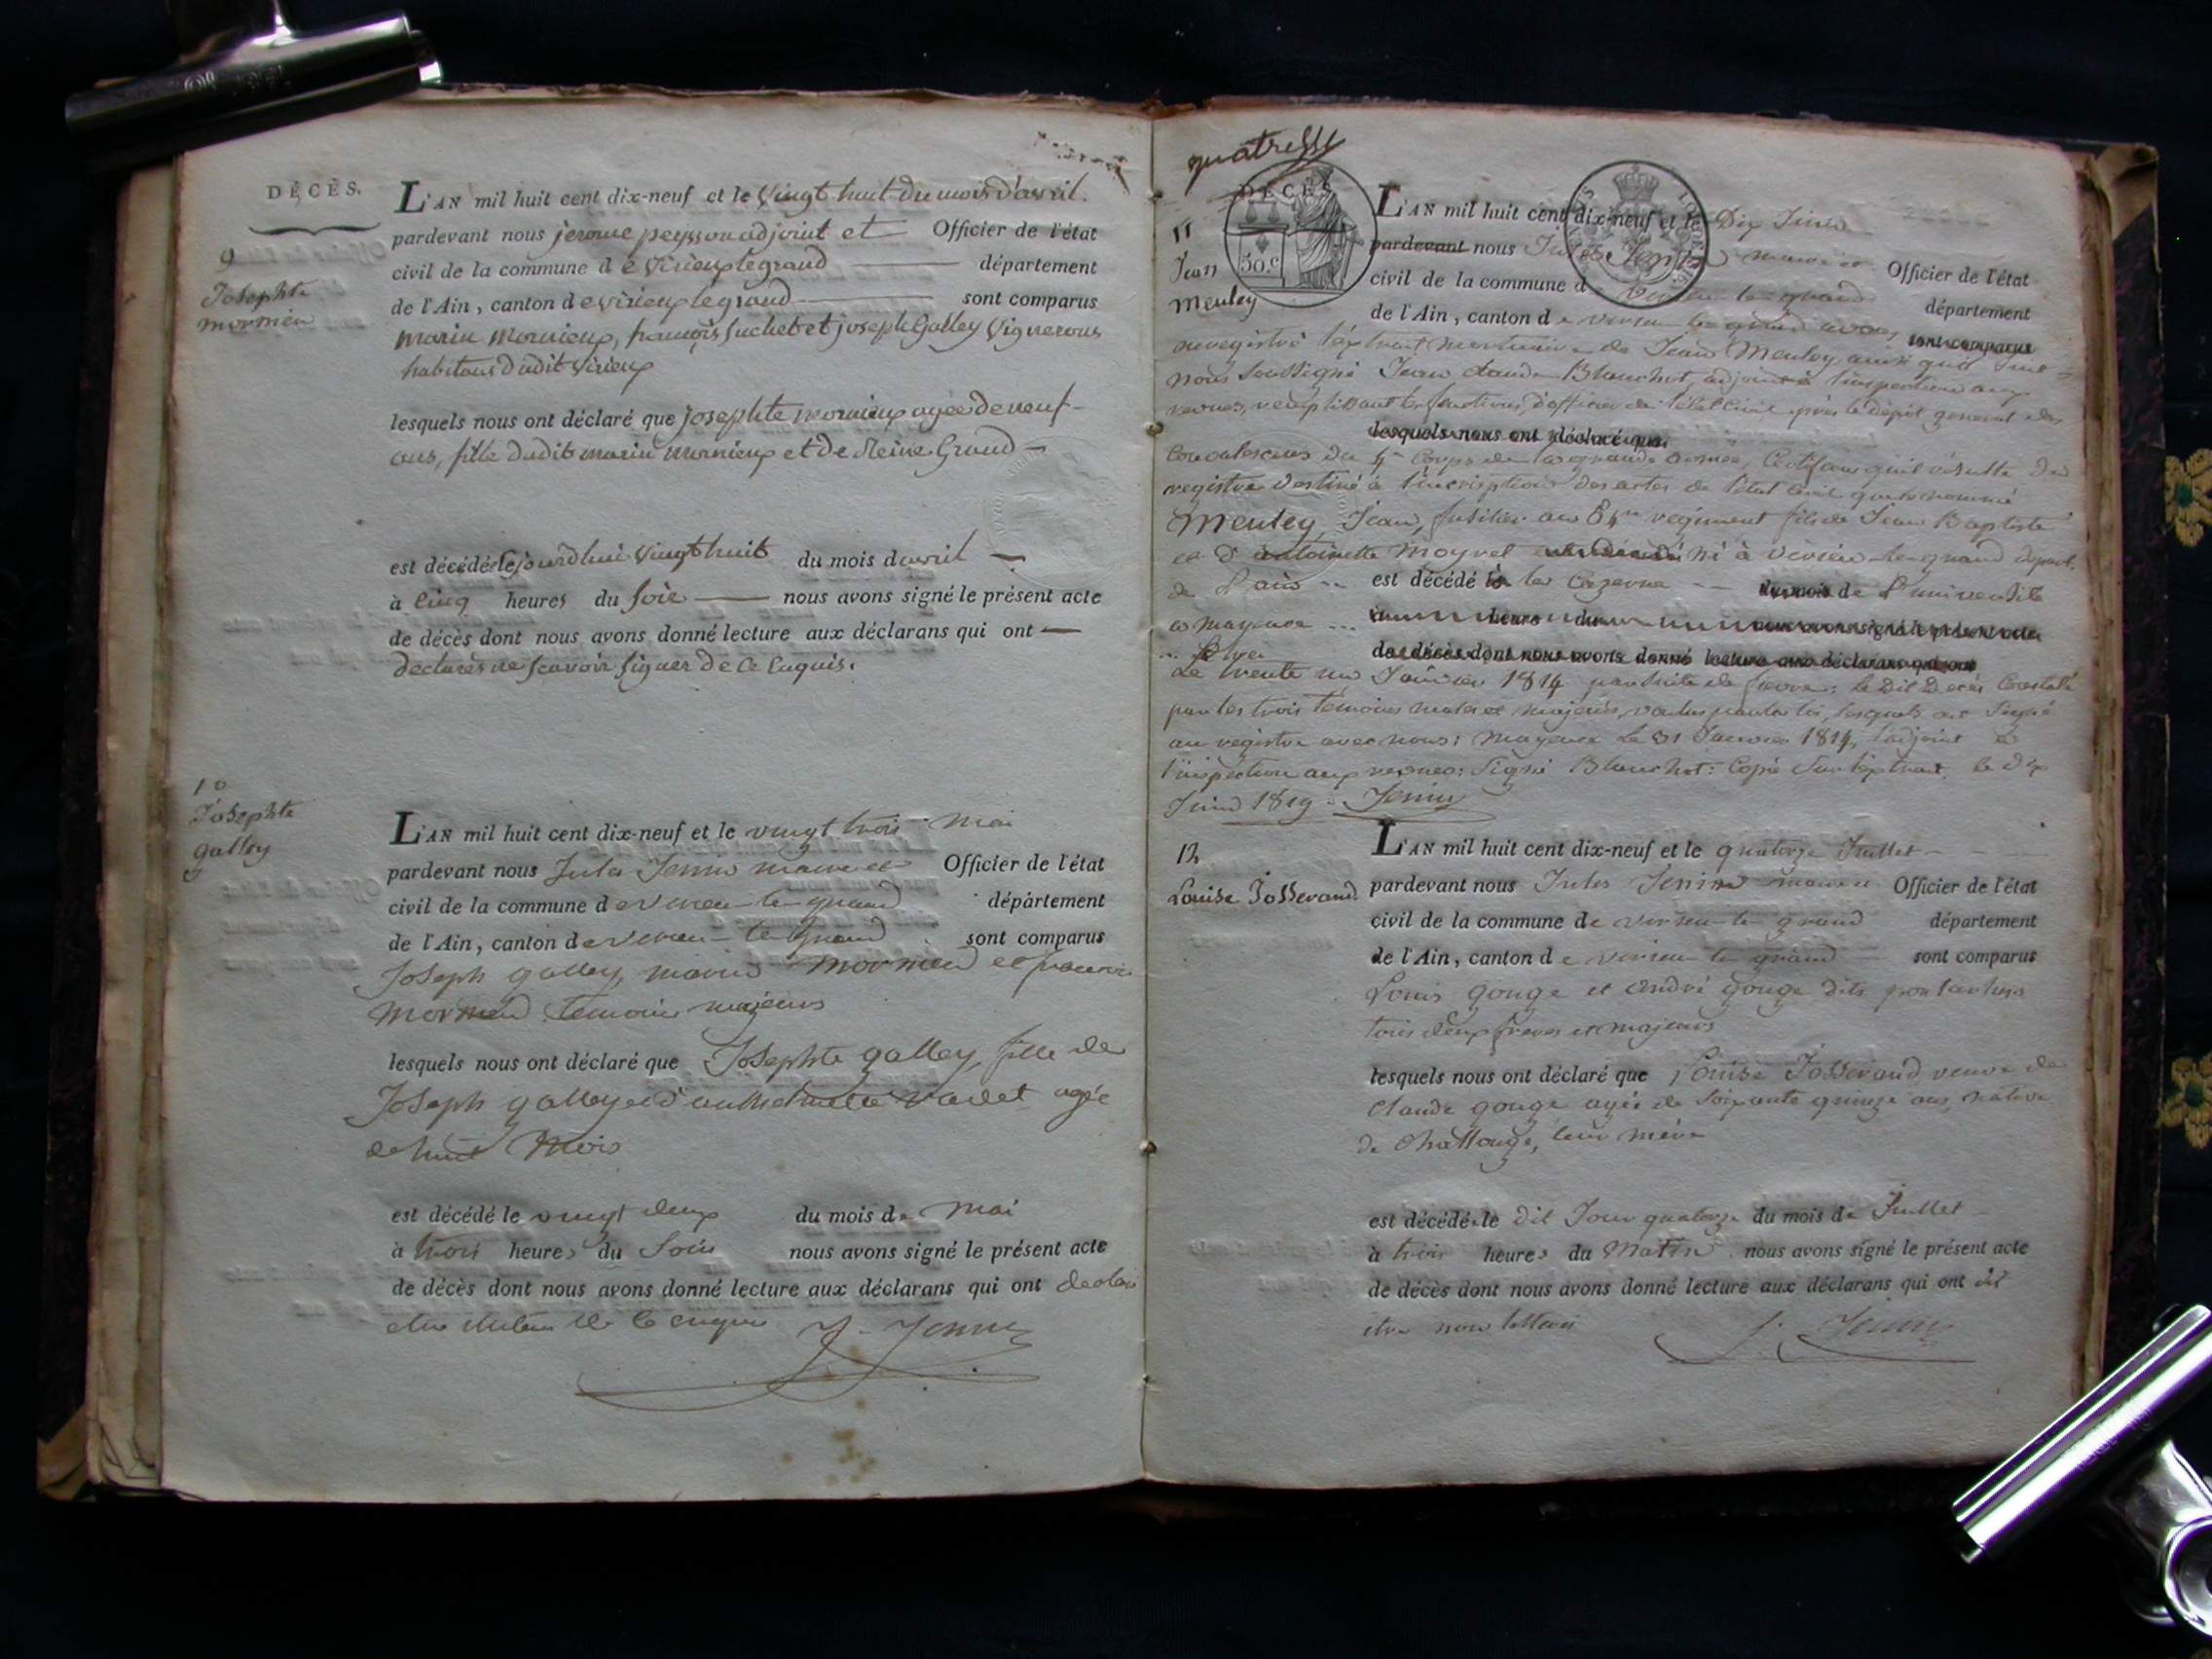 DÉCÈS.
9
Josephte
mornieu
L'AN mil huit cent dix-neuf et le vingt huit du mois d'avril.
pardevant nous jerome peysson adjoint et Officier de l'état
civil de la commune de virieux legrand département
de l'Ain, canton de virieux legrand sont comparus
marin mornieux, françois Suchet et joseph Galley vignerons
habitans dudit virieux
lesquels nous ont déclaré que josephte mornieux agée de neuf
ans, fille dudit marin mornieux et de Reine Grand
est décédée le jourd'hui vingt huit du mois d'avril
à cinq heures du soir nous avons signé le présent acte
de décès dont nous avons donné lecture aux déclarans qui ont
declarés ne scavoir signer de ce enquis.
10
Josephte
galley
L'AN mil huit cent dix-neuf et le vingt trois mai
pardevant nous Jules Jenin maire et Officier de l'état
civil de la commune de virieu le grand département
de l'Ain, canton de virieu le grand sont comparus
Joseph galley, marin mornieu et
mornieu temoins majeurs
lesquels nous ont déclaré que Josephte galley, fille de
Joseph galley et d' agée
de huit mois
est décédé le vingt deux du mois de mai
à trois heures du soir nous avons signé le présent acte
de décès dont nous avons donné lecture aux déclarans qui ont declaré
de ce enquis J. Jenin
quatre
DÉCÈS
50 c
11
Jean
Meuley
L'AN mil huit cent dix-neuf et le Dix Juin
pardevant nous Jules Jenin maire et Officier de l'état
civil de la commune de virieu le grand département
de l'Ain, canton de virieu le grand avons sont comparus
enregistré l'extrait mortuaire de Jean Meuley ainsi qu'il suit
nous soussigné Jean claude Blanchot, adjoint à l'inspection aux
revues, remplissant les fonctions d'officier de l'état civil près le dépôt general des
lesquels nous ont déclaré que
convalescens du 4e corps de la grande armée, certifions qu'il résulte du
registre destiné à l'inscription des actes de l'état civil que le nommé
Meuley Jean, fusilier au régiment fils de Jean Baptiste
et d'antoinette Moyret né à virieu le grand départ.
de l'ain est décédé à la cazerne du mois de l'université
a mayence heures du nous avons signé le présent acte
de décès dont nous avons donné lecture aux déclarans qui ont
Le trente un Janvier 1814 par suite de fievre; le dit Décès constaté
par les trois témoins males et majeurs, voulus par la loi, lesquels ont signé
au registre avec nous: mayence le 31 Janvier 1814, l'adjoint à
l'inspection aux revues: signé Blanchot: copié sur l'extrait, le dix
Juin 1819. Jenin
12
Louise Josserand.
L'AN mil huit cent dix-neuf et le quatorze Juillet
pardevant nous Jules Jenin maire et Officier de l'état
civil de la commune de virieu le grand département
de l'Ain, canton de virieu le grand sont comparus
Louis gouge et andré gouge dits
tous deux freres et majeurs
lesquels nous ont déclaré que Louise Josserand veuve de
Claude gouge agée de soixante quinze ans, native
de leur mère
est décédée le dit Jour quatorze du mois de Juillet
à trois heures du Matin nous avons signé le présent acte
de décès dont nous avons donné lecture aux déclarans qui ont dit
etre non lettrés J. Jenin